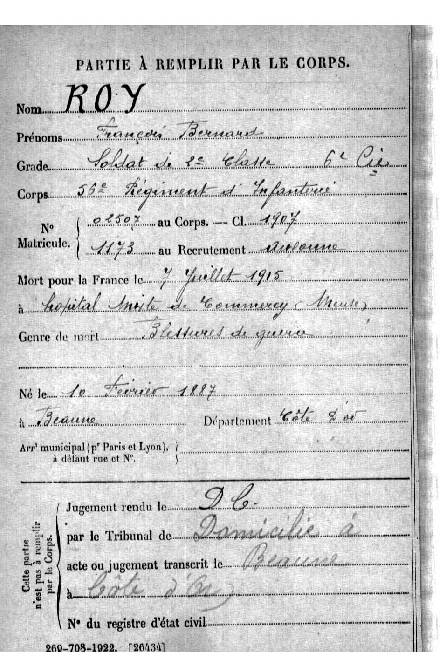 PARTIE À REMPLIR PAR LE CORPS.
Nom ROY
Prénoms François Bernard
Grade Soldat de 2e Classe 6e Cie
Corps 56e Régiment d'Infanterie
No Matricule. { 02507 au Corps. — Cl. 1907
1173 au Recrutement Auxonne
Mort pour la France le 7 Juillet 1915
à hôpital mixte de Commercy (Meuse)
Genre de mort Blessures de guerre
Né le 10 Février 1887
à Beaune Département Côte d'or
Arrt municipal (pr Paris et Lyon), à défaut rue et No.
Cette partie n'est pas à remplir par le Corps.
Jugement rendu le D.C.
par le Tribunal de Domicilié à
acte ou jugement transcrit le Beaune
à Côte d'Or
No du registre d'état civil
269-708-1922. [26434]